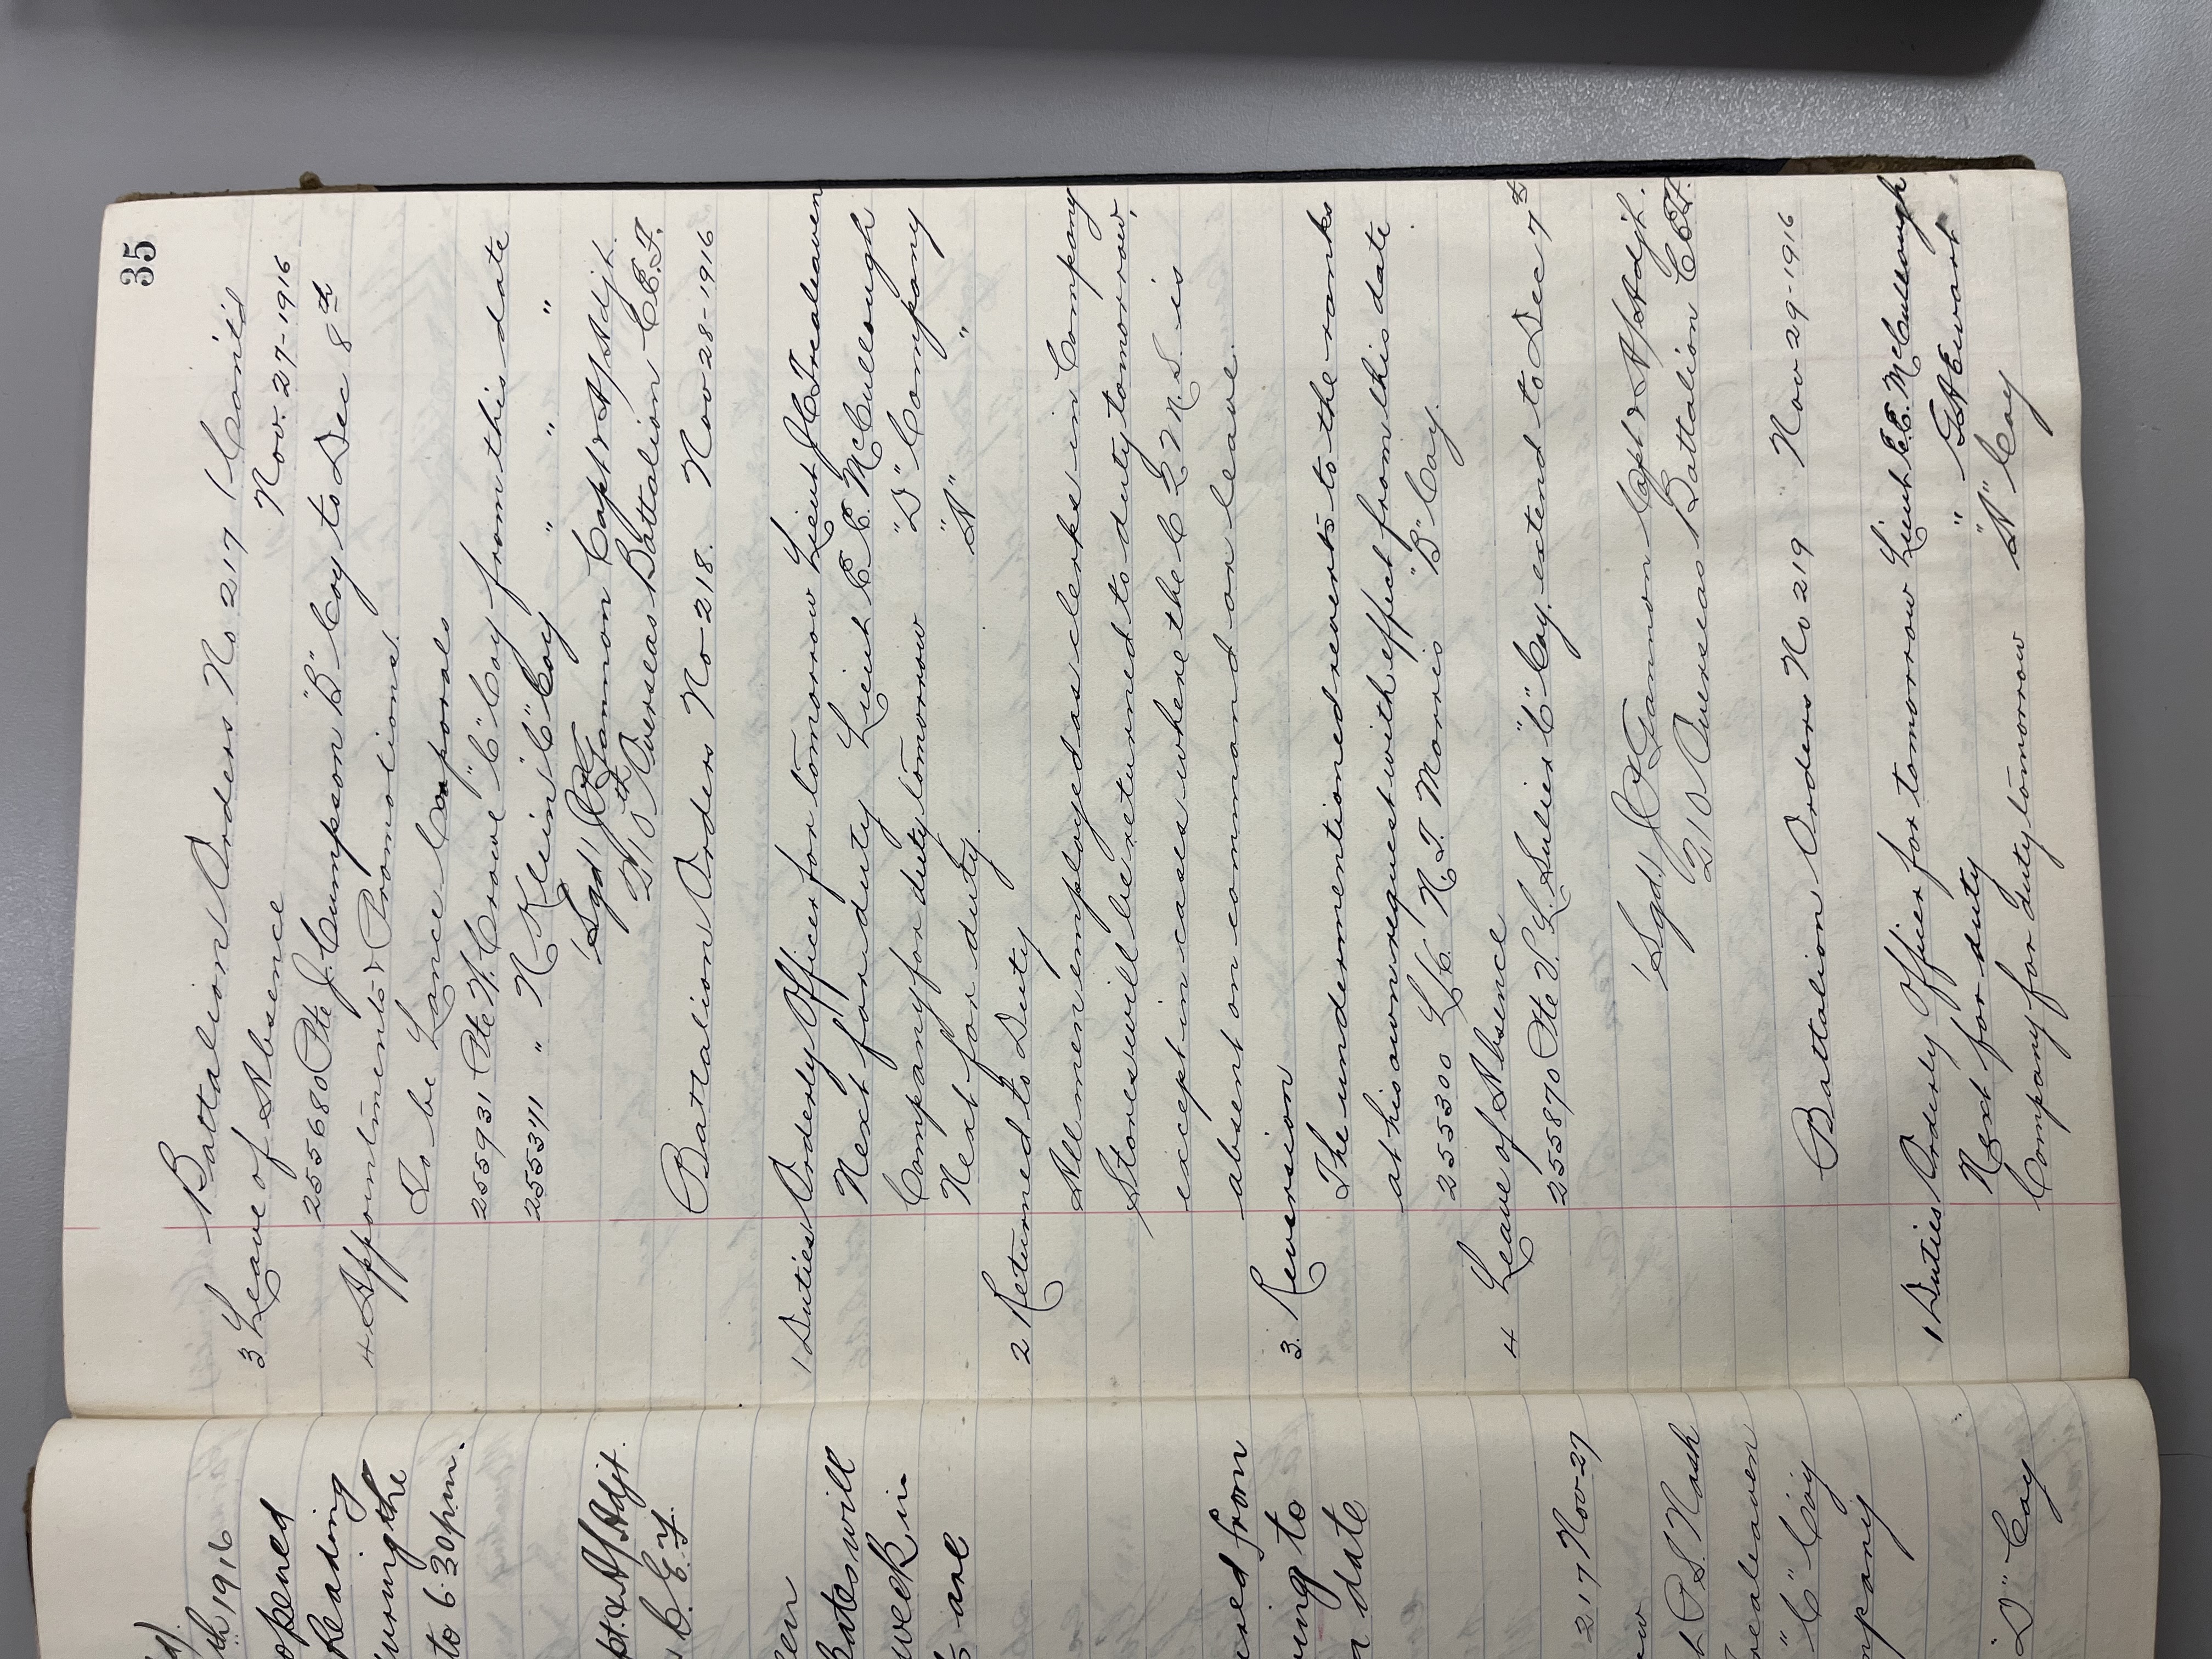 35
Battalion Orders No 217 (Cont'd
Nov. 27-1916
3 Leave of Absence
255680 Pte J. Cumpson "B" Coy to Dec 8th
4 Appointments & Promotions.
To be Lance Corporals
255931 Pte W. Crowe "C" Coy from this date
255371 " N Klein "C" Coy " " "
'Sgd' J Gannon Capt & A/Adjt.
210th Overseas Battalion C.E.F.
Battalion Orders No 218. Nov 28-1916
1 Duties Orderly Officer for tomorrow Lieut J C Trealeaven
Next for duty Lieut E C McCullough
Company for duty tomorrow "D" Company
Next for duty. "A" "
2 Returned to Duty
All men employed as clerks in Company
Stores will be returned to duty tomorrow,
except in cases where the C Q M S. is
absent on command or leave.
3. Reversion
The undermentioned reverts to the ranks
at his own request with effect from this date
255300 L/C N. T. Morris "B" Coy.
4 Leave of Absence
255870 Pte V. L. Sulier "C" Coy. extend to Dec 7th
'Sgd' J Gannon Capt & A/Adjt.
210 Overseas Battalion C.E.F.
Battalion Orders No 219 Nov 29-1916
1 Duties Orderly Officer for tomorrow Lieut E.C. McCullough
Next for duty " G A Ewart
Company for duty tomorrow "A" Coy
1916
opened
heading
during the
to 6.30 p.m.
A/Adjt.
C. E. F.
will
week in
are
from
to
date
217 Nov-27
P. S. Nash
"C" Coy
"D" Coy